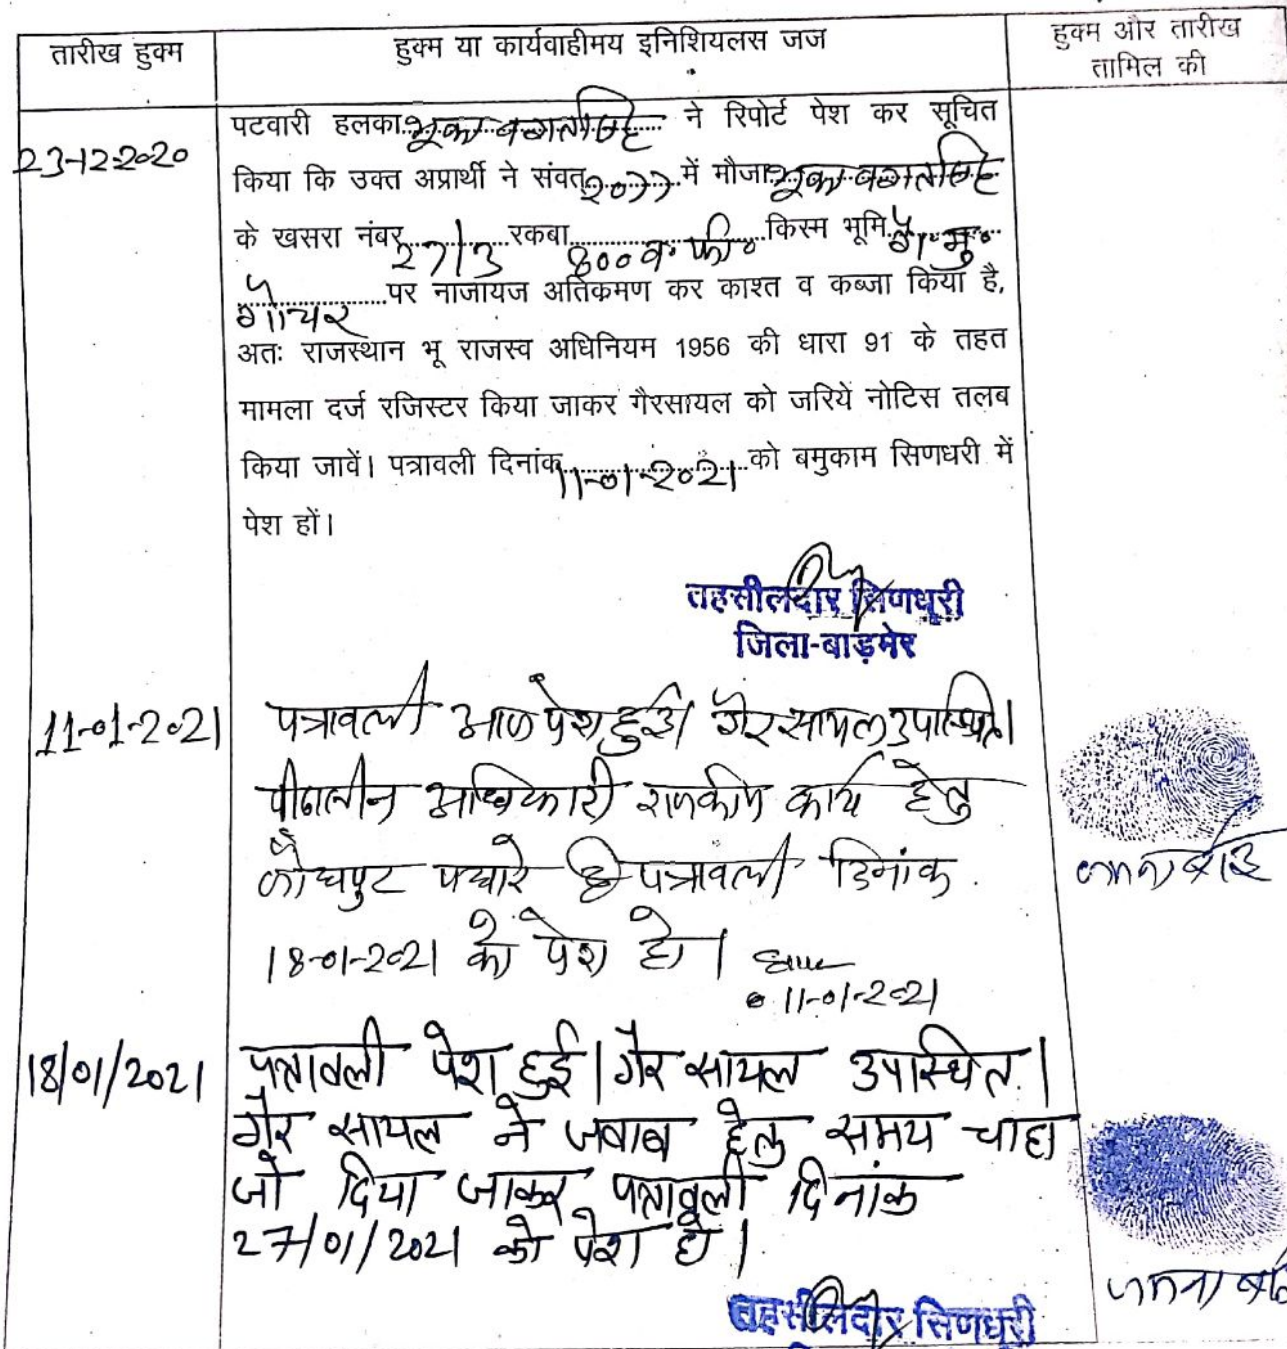 तारीख हुक्म
हुक्म या कार्यवाहीमय इनिशियलस जज
हुक्म और तारीख
तामिल की
23-12-2020
पटवारी हलका भूका भगतसिंह ने रिपोर्ट पेश कर सूचित
किया कि उक्त अप्रार्थी ने संवत् 2077 में मौजा भूका भगतसिंह
के खसरा नंबर 27/3 रकबा 800 व. फी. किस्म भूमि गै. मु.
गोचर पर नाजायज अतिकमण कर काश्त व कब्जा किया है,
अतः राजस्थान भू राजस्व अधिनियम 1956 की धारा 91 के तहत
मामला दर्ज रजिस्टर किया जाकर गैरसायल को जरियें नोटिस तलब
किया जावें। पत्रावली दिनांक 11-01-2021 को बमुकाम सिणधरी में
पेश हों।
तहसीलदार सिणधरी
जिला-बाड़मेर
11-01-2021
पत्रावली आज पेश हुई। गैर सायल उपस्थित।
पीठासीन अधिकारी राजकीय कार्य हेतु
जोधपुर पधारे है पत्रावली दिनांक
18-01-2021 को पेश हो।
11-01-2021
18/01/2021
पत्रावली पेश हुई। गैर सायल उपस्थित।
गैर सायल ने जवाब हेतु समय चाहा
जो दिया जाकर पत्रावली दिनांक
27/01/2021 को पेश हो।
तहसीलदार सिणधरी